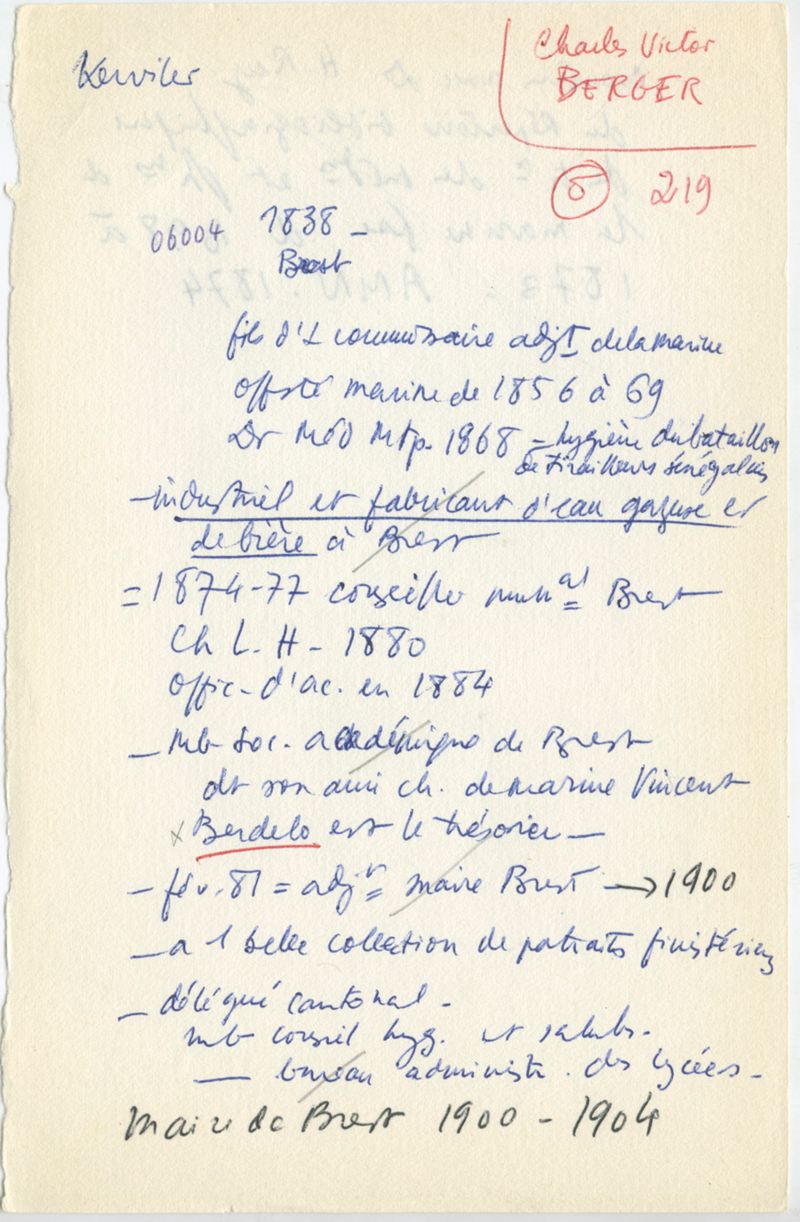 Kerviler
Charles Victor
BERGER
5 219
06004 1838 –
Brest
fils d'1 commissaire adjt de la marine
off sté marine de 1856 à 69
Dr Méd Mtp. 1868 – hygiène du bataillon
de tirailleurs sénégalais
– industriel et fabricant d'eau gazeuse et
de bière à Brest
= 1874-77 conseiller munal Brest
Ch L. H – 1880
Offic. d'ac. en 1884
– mb soc. académique de Brest
dt son ami ch. de marine Vincent
x Berdelo est le trésorier –
– fév. 81 = adjt maire Brest → 1900
– a 1 belle collection de portraits finistériens
– délégué cantonal –
mb conseil hyg. et salub.
— bureau administr. des lycées –
Maire de Brest 1900 – 1904